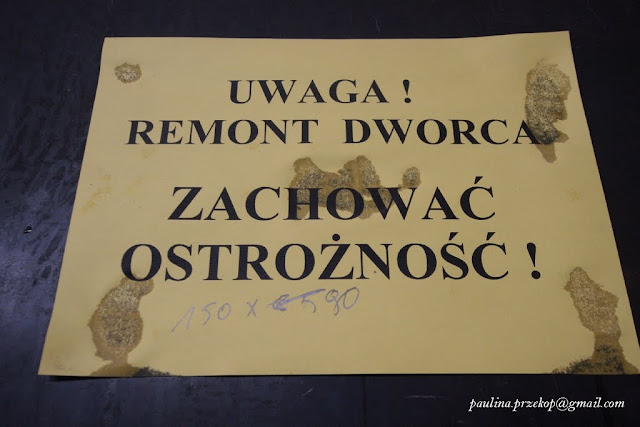 UWAGA !
REMONT DWORCA
ZACHOWAĆ
OSTROŻNOŚĆ !
150 x 590
paulina.przekop@gmail.com